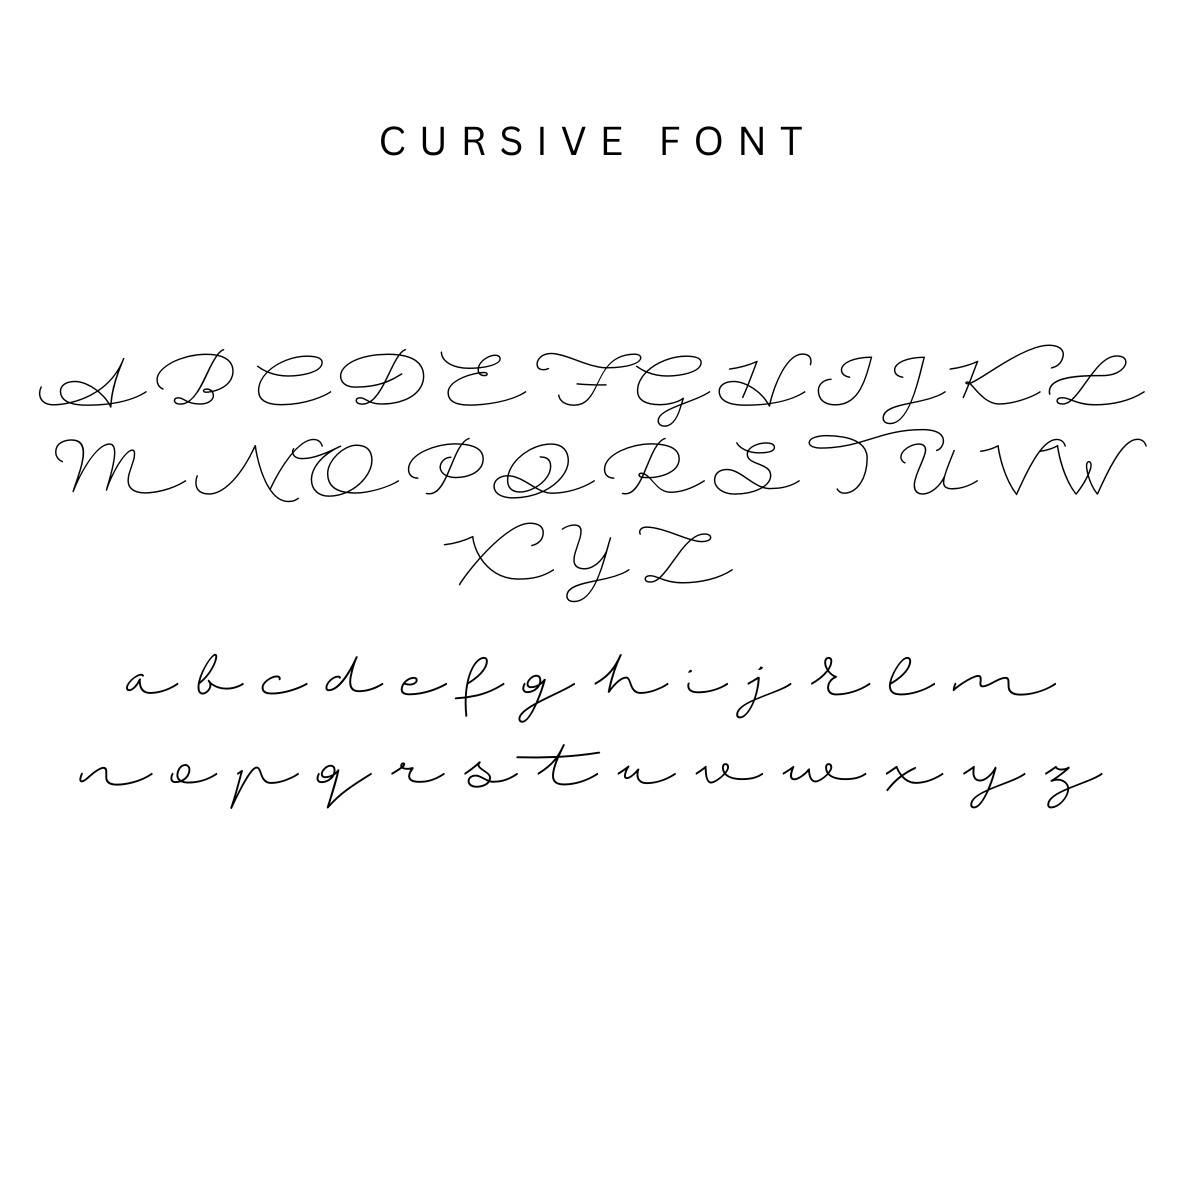 CURSIVE FONT
A B C D E F G H I J K L
M N O P Q R S T U V W
X Y Z
a b c d e f g h i j k l m
n o p q r s t u v w x y z